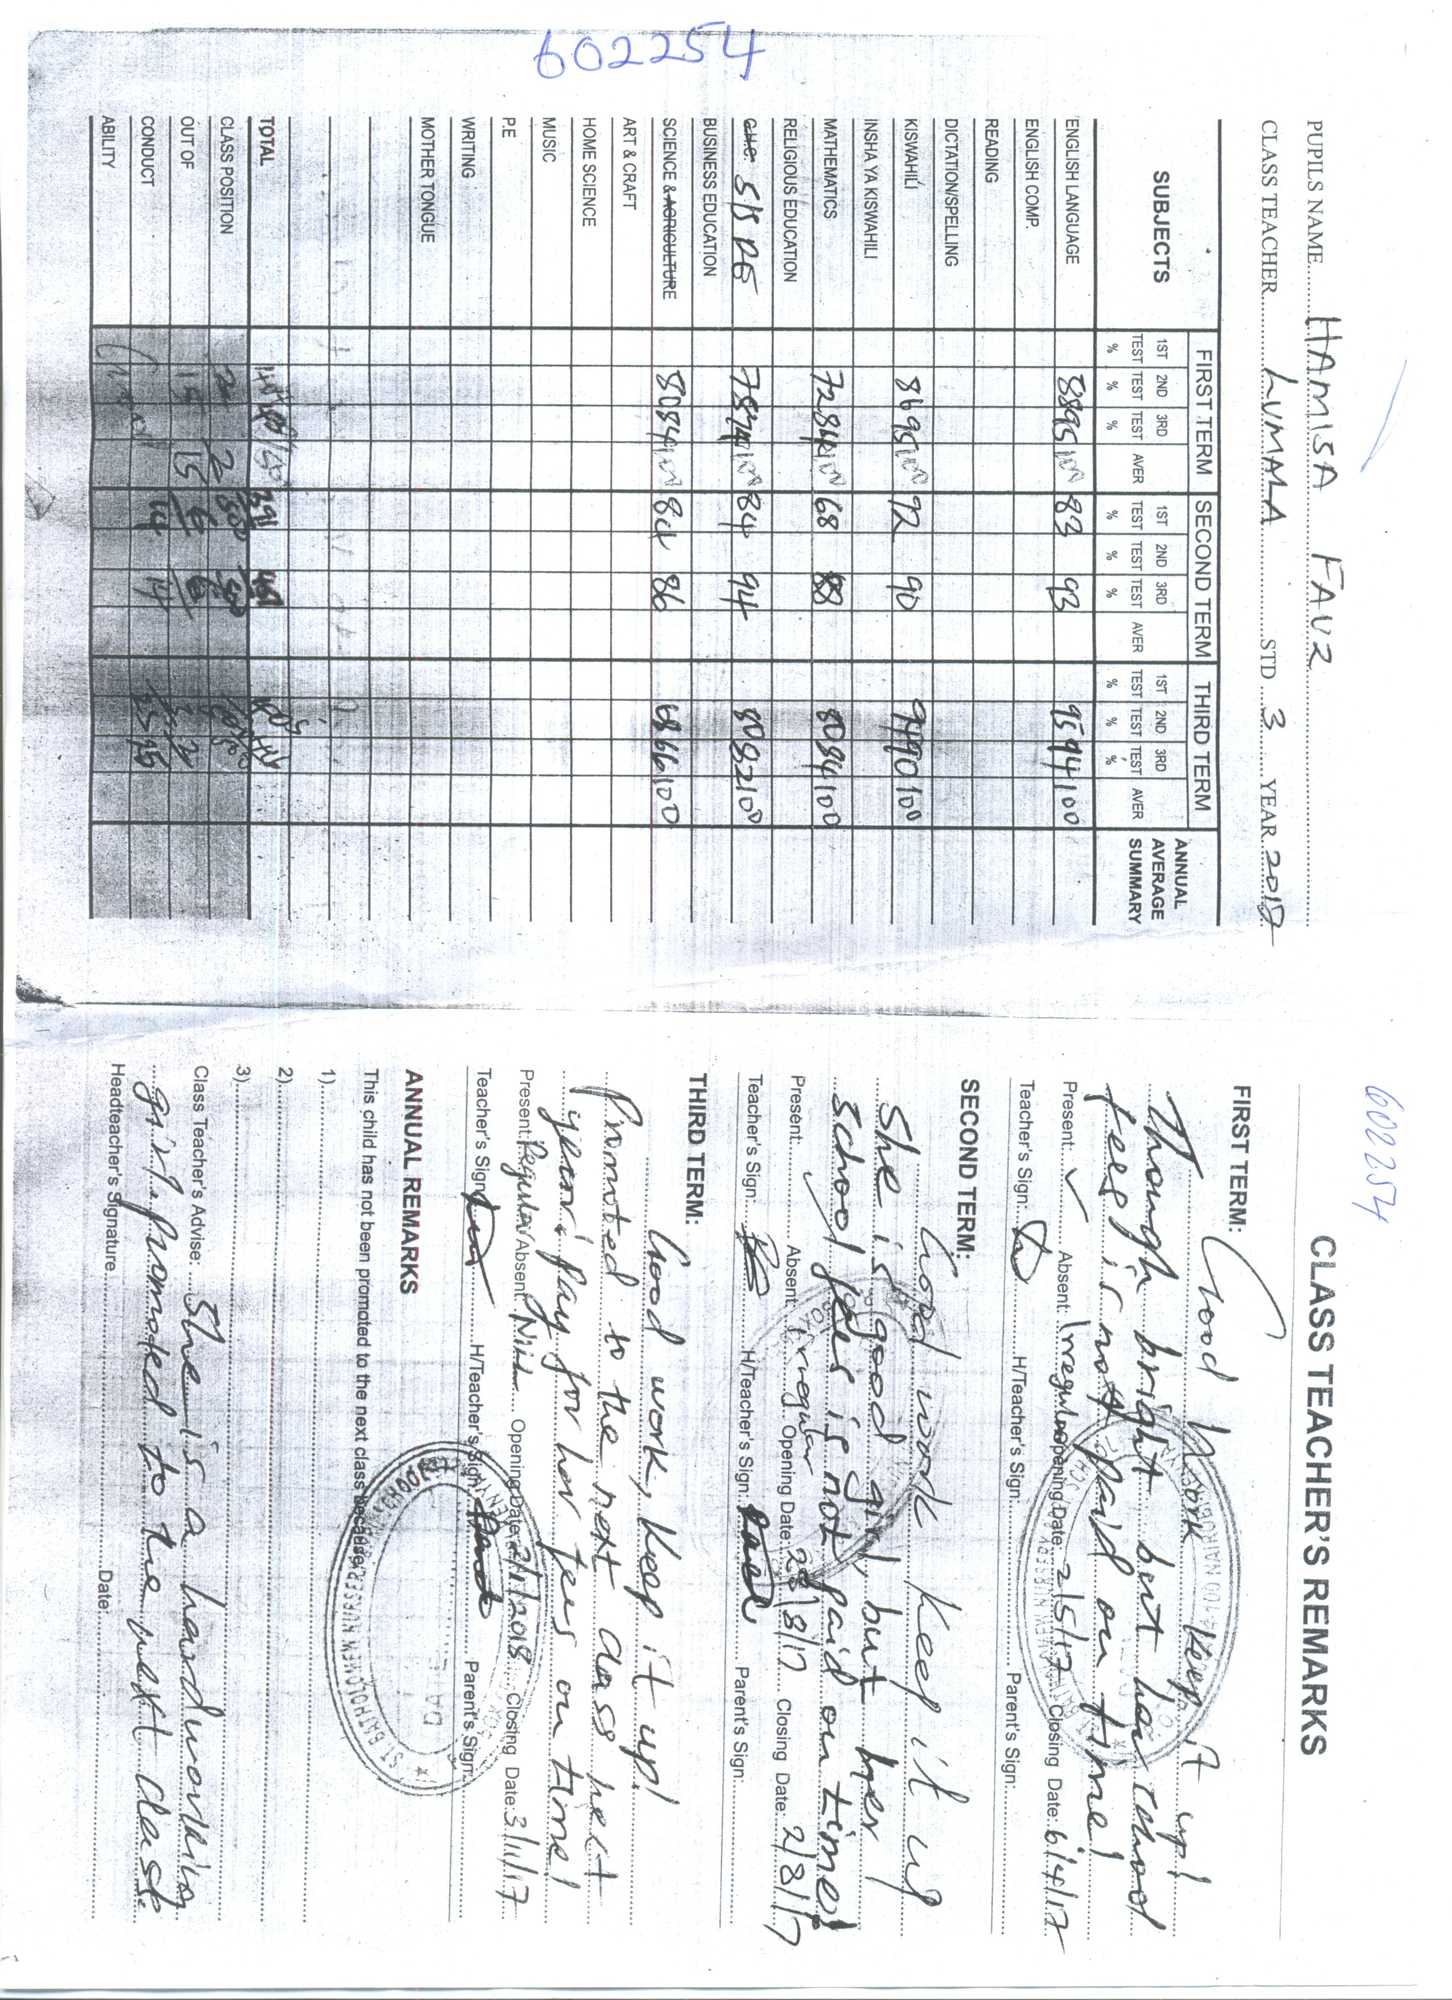 602254
PUPILS NAME HAMISA FAUZ
CLASS TEACHER LUMALA STD 3 YEAR 2017
SUBJECTS FIRST TERM SECOND TERM THIRD TERM ANNUAL AVERAGE SUMMARY
1ST TEST % 2ND TEST % 3RD TEST % AVER 1ST TEST % 2ND TEST % 3RD TEST % AVER 1ST TEST % 2ND TEST % 3RD TEST % AVER
ENGLISH LANGUAGE 88 95 100 83 93 95 94 100
ENGLISH COMP.
READING
DICTATION/SPELLING
KISWAHILI 86 95 100 92 90 94 90 100
INSHA YA KISWAHILI
MATHEMATICS 72 84 100 68 88 80 84 100
RELIGIOUS EDUCATION
G.H.C. S/S RE 78 74 100 84 94 80 82 100
BUSINESS EDUCATION
SCIENCE & AGRICULTURE 80 84 100 84 86 68 66 100
ART & CRAFT
HOME SCIENCE
MUSIC
P.E
WRITING
MOTHER TONGUE
TOTAL
CLASS POSITION 2 2
OUT OF 15 15
CONDUCT
ABILITY
602254
CLASS TEACHER'S REMARKS
FIRST TERM: Good work keep it up!
Though bright but her school
fees is not paid on time!
Present: ✓ Absent: Irregular Opening Date: 2/5/17 Closing Date: 6/4/17
Teacher's Sign: H/Teacher's Sign: Parent's Sign:
SECOND TERM: Good work keep it up
She is good girl, but her
school fees is not paid on time!
Present: ✓ Absent: Irregular Opening Date: 28/8/17 Closing Date: 2/8/17
Teacher's Sign: H/Teacher's Sign: Parent's Sign:
THIRD TERM: Good work, keep it up!
Promoted to the next class next
year. Pay for her fees on time!
Present: Regular Absent: Opening Date: 2/1/2018 Closing Date: 3/11/17
Teacher's Sign: H/Teacher's Sign: Parent's Sign:
ANNUAL REMARKS
This child has not been promoted to the next class because
1)
2)
3)
Class Teacher's Advise: She is a hardworking
girl, promoted to the next class
Headteacher's Signature Date: